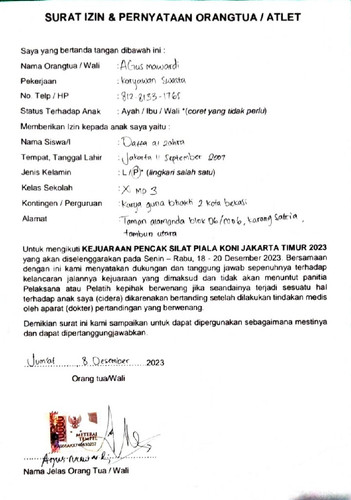 SURAT IZIN & PERNYATAAN ORANGTUA / ATLET
Saya yang bertanda tangan dibawah ini :
Nama Orangtua / Wali : AGus mawardi
Pekerjaan : Karyawan Swasta
No. Telp / HP : 812-8133-1768
Status Terhadap Anak : Ayah / Ibu / Wali *(coret yang tidak perlu)
Memberikan Izin kepada anak saya yaitu :
Nama Siswa/I : Dawa al zahra
Tempat, Tanggal Lahir : Jakarta 11 September 2007
Jenis Kelamin : L / P * (lingkari salah satu)
Kelas Sekolah : X MP 3
Kontingen / Perguruan : Karya guna bhakti 2 kota bekasi
Alamat : Taman alamanda blok D6/no6, karang satria,
tambun utara
Untuk mengikuti KEJUARAAN PENCAK SILAT PIALA KONI JAKARTA TIMUR 2023
yang akan diselenggarakan pada Senin – Rabu, 18 - 20 Desember 2023. Bersamaan
dengan ini kami menyatakan dukungan dan tanggung jawab sepenuhnya terhadap
kelancaran jalannya kejuaraan yang dimaksud dan tidak akan menuntut panitia
Pelaksana atau Pelatih kepihak berwenang jika seandainya terjadi sesuatu hal
terhadap anak saya (cidera) dikarenakan bertanding setelah dilakukan tindakan medis
oleh aparat (dokter) pertandingan yang berwenang.
Demikian surat ini kami sampaikan untuk dapat dipergunakan sebagaimana mestinya
dan dapat dipertanggungjawabkan.
Jum'at 8 Desember 2023
Orang tua/Wali
METERAI
TEMPEL
Agus mawardi
Nama Jelas Orang Tua / Wali